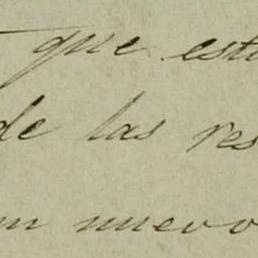 que est
de las res
un nuevo